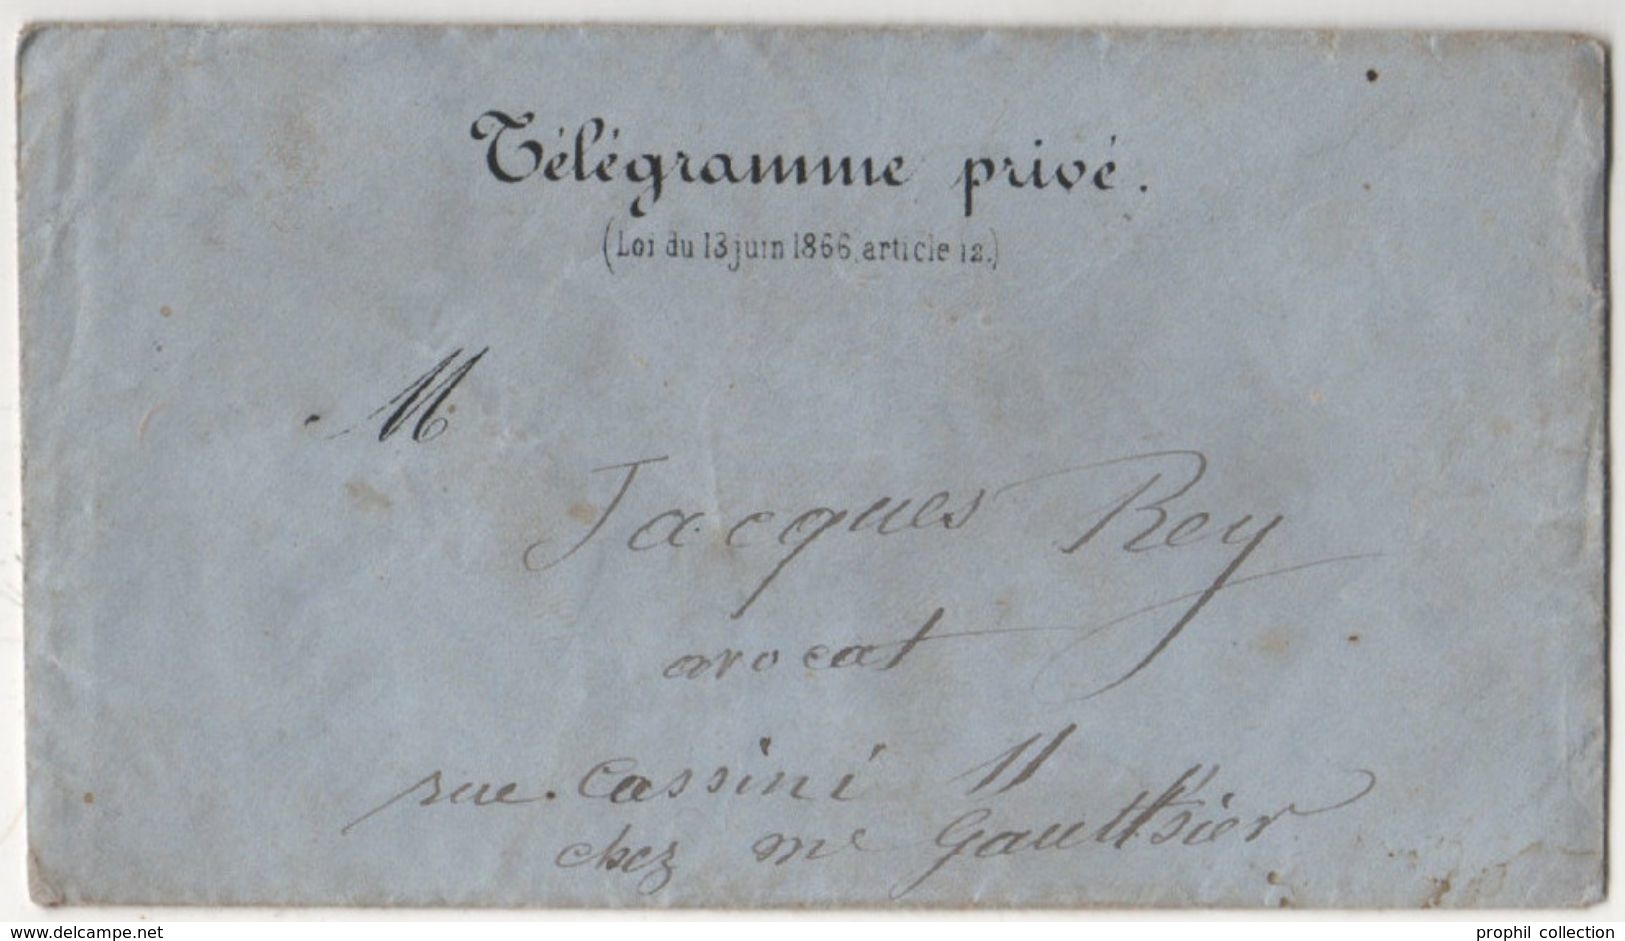 Télégramme privé.
(Loi du 13 juin 1866, article 12.)
M
Jacques Rey
avocat
rue Cassini 11
chez me Gaulthier
www.delcampe.net
prophil collection